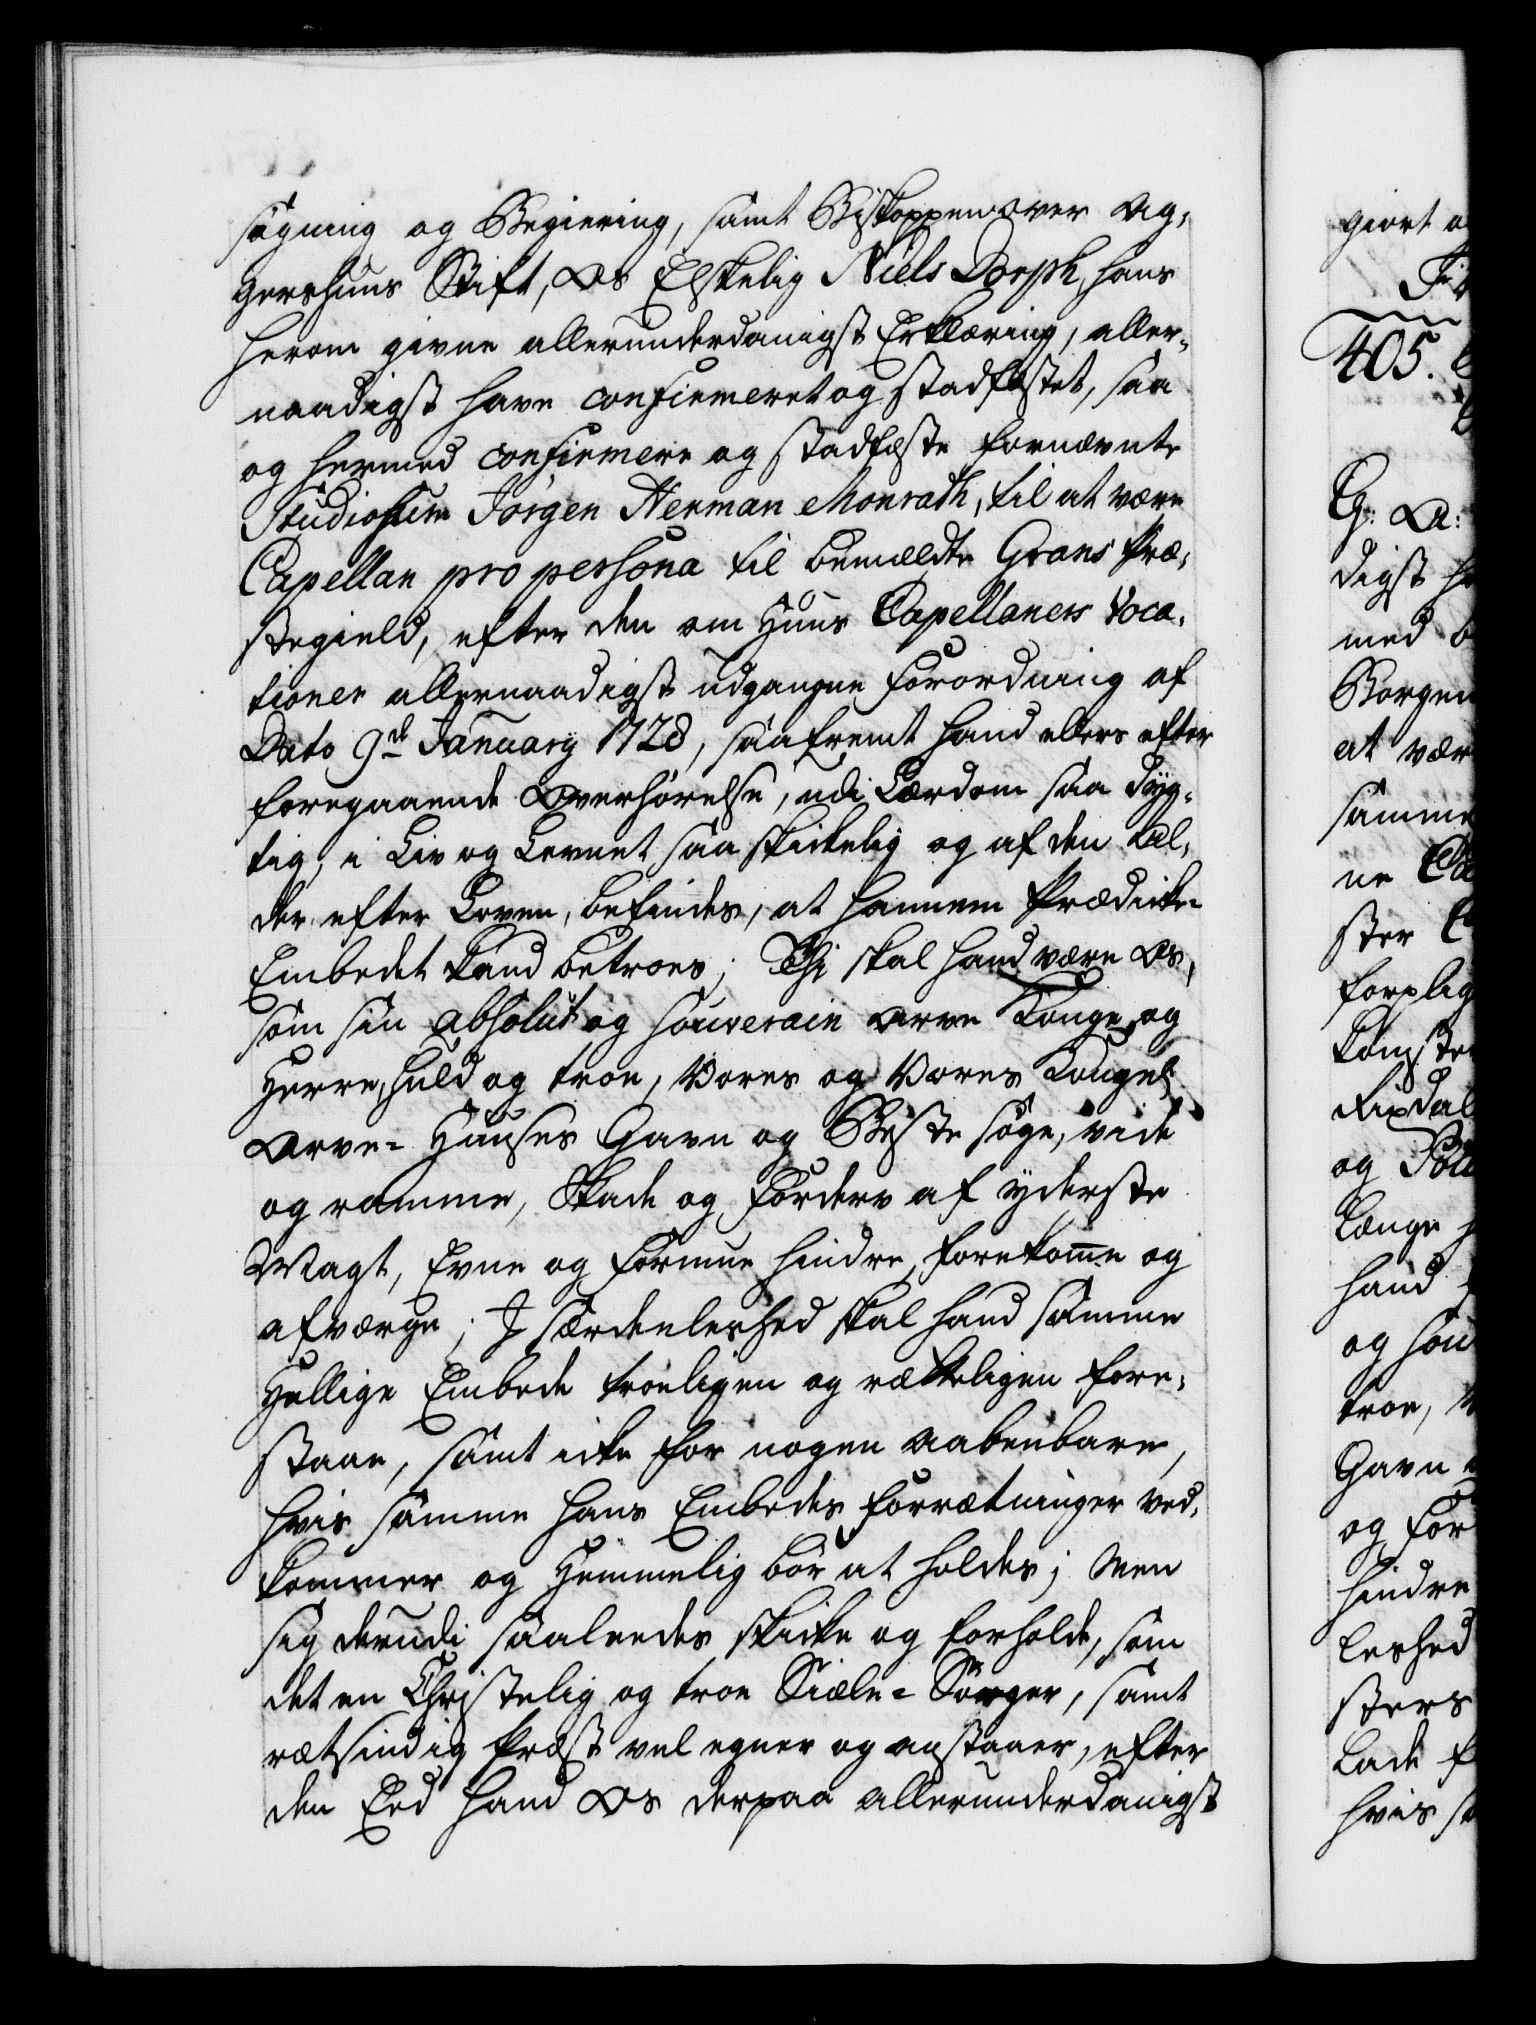 søgning og Begiering, samt Biskoppen over Ag-
gershuus Stift, Os Elskelig Niels Dorph, hans
herom givne allerunderdanigst Erklæring, aller-
naadigst have confirmeret og stadfæstet, saa
og hermed confirmere og stadfæste fornævnte
Studiosum Jørgen Herman Monrath, til at være
Capellan pro persona til bemældte Grans Præ-
stegield, efter den om Huus Capellaners Voca-
tioner allernaadigst udgangne Forordning af
Dato 9de January 1728, saafremt hand ellers efter
foregaaende Overhørelse, udi Lærdom saa dyg-
tig, i Liv og Levnet saa skickelig og af den Al-
der efter Loven, befindes, at hannem Prædicke-
Embedet kand betroes; Thi skal hand være Os,
som sin absolut og souverain Arve Konge og
Herre, huld og troe, Vores og Vores Kongel:
Arve- Huuses Gavn og Beste søge, vide
og ramme, Skade og Forderv af yderste
Magt, Evne og Formue hindre, forekomme og
afværge; I særdeeleshed skal hand samme
Hellige Embede troeligen og rætteligen fore-
staae, samt icke for nogen aabenbare,
hvis samme hans Embedes Forrætninger ved-
kommer og Hemmelig bør at holdes; Men
sig derudi saaleedes skicke og forholde, som
det en Christelig og troe Siæle- Sørger, samt
rætsindig Præst vel egner og anstaaer, efter
den Eed hand Os derpaa allerunderdanigst
giort
405.
G: A:
digst
med
Borgen
at vær
samme
ne
ster
forplig
komster
Rixdal
og
længe
hand
og sou
troe,
Gavn
og For
hindre
leshed
sters
lade
hvis